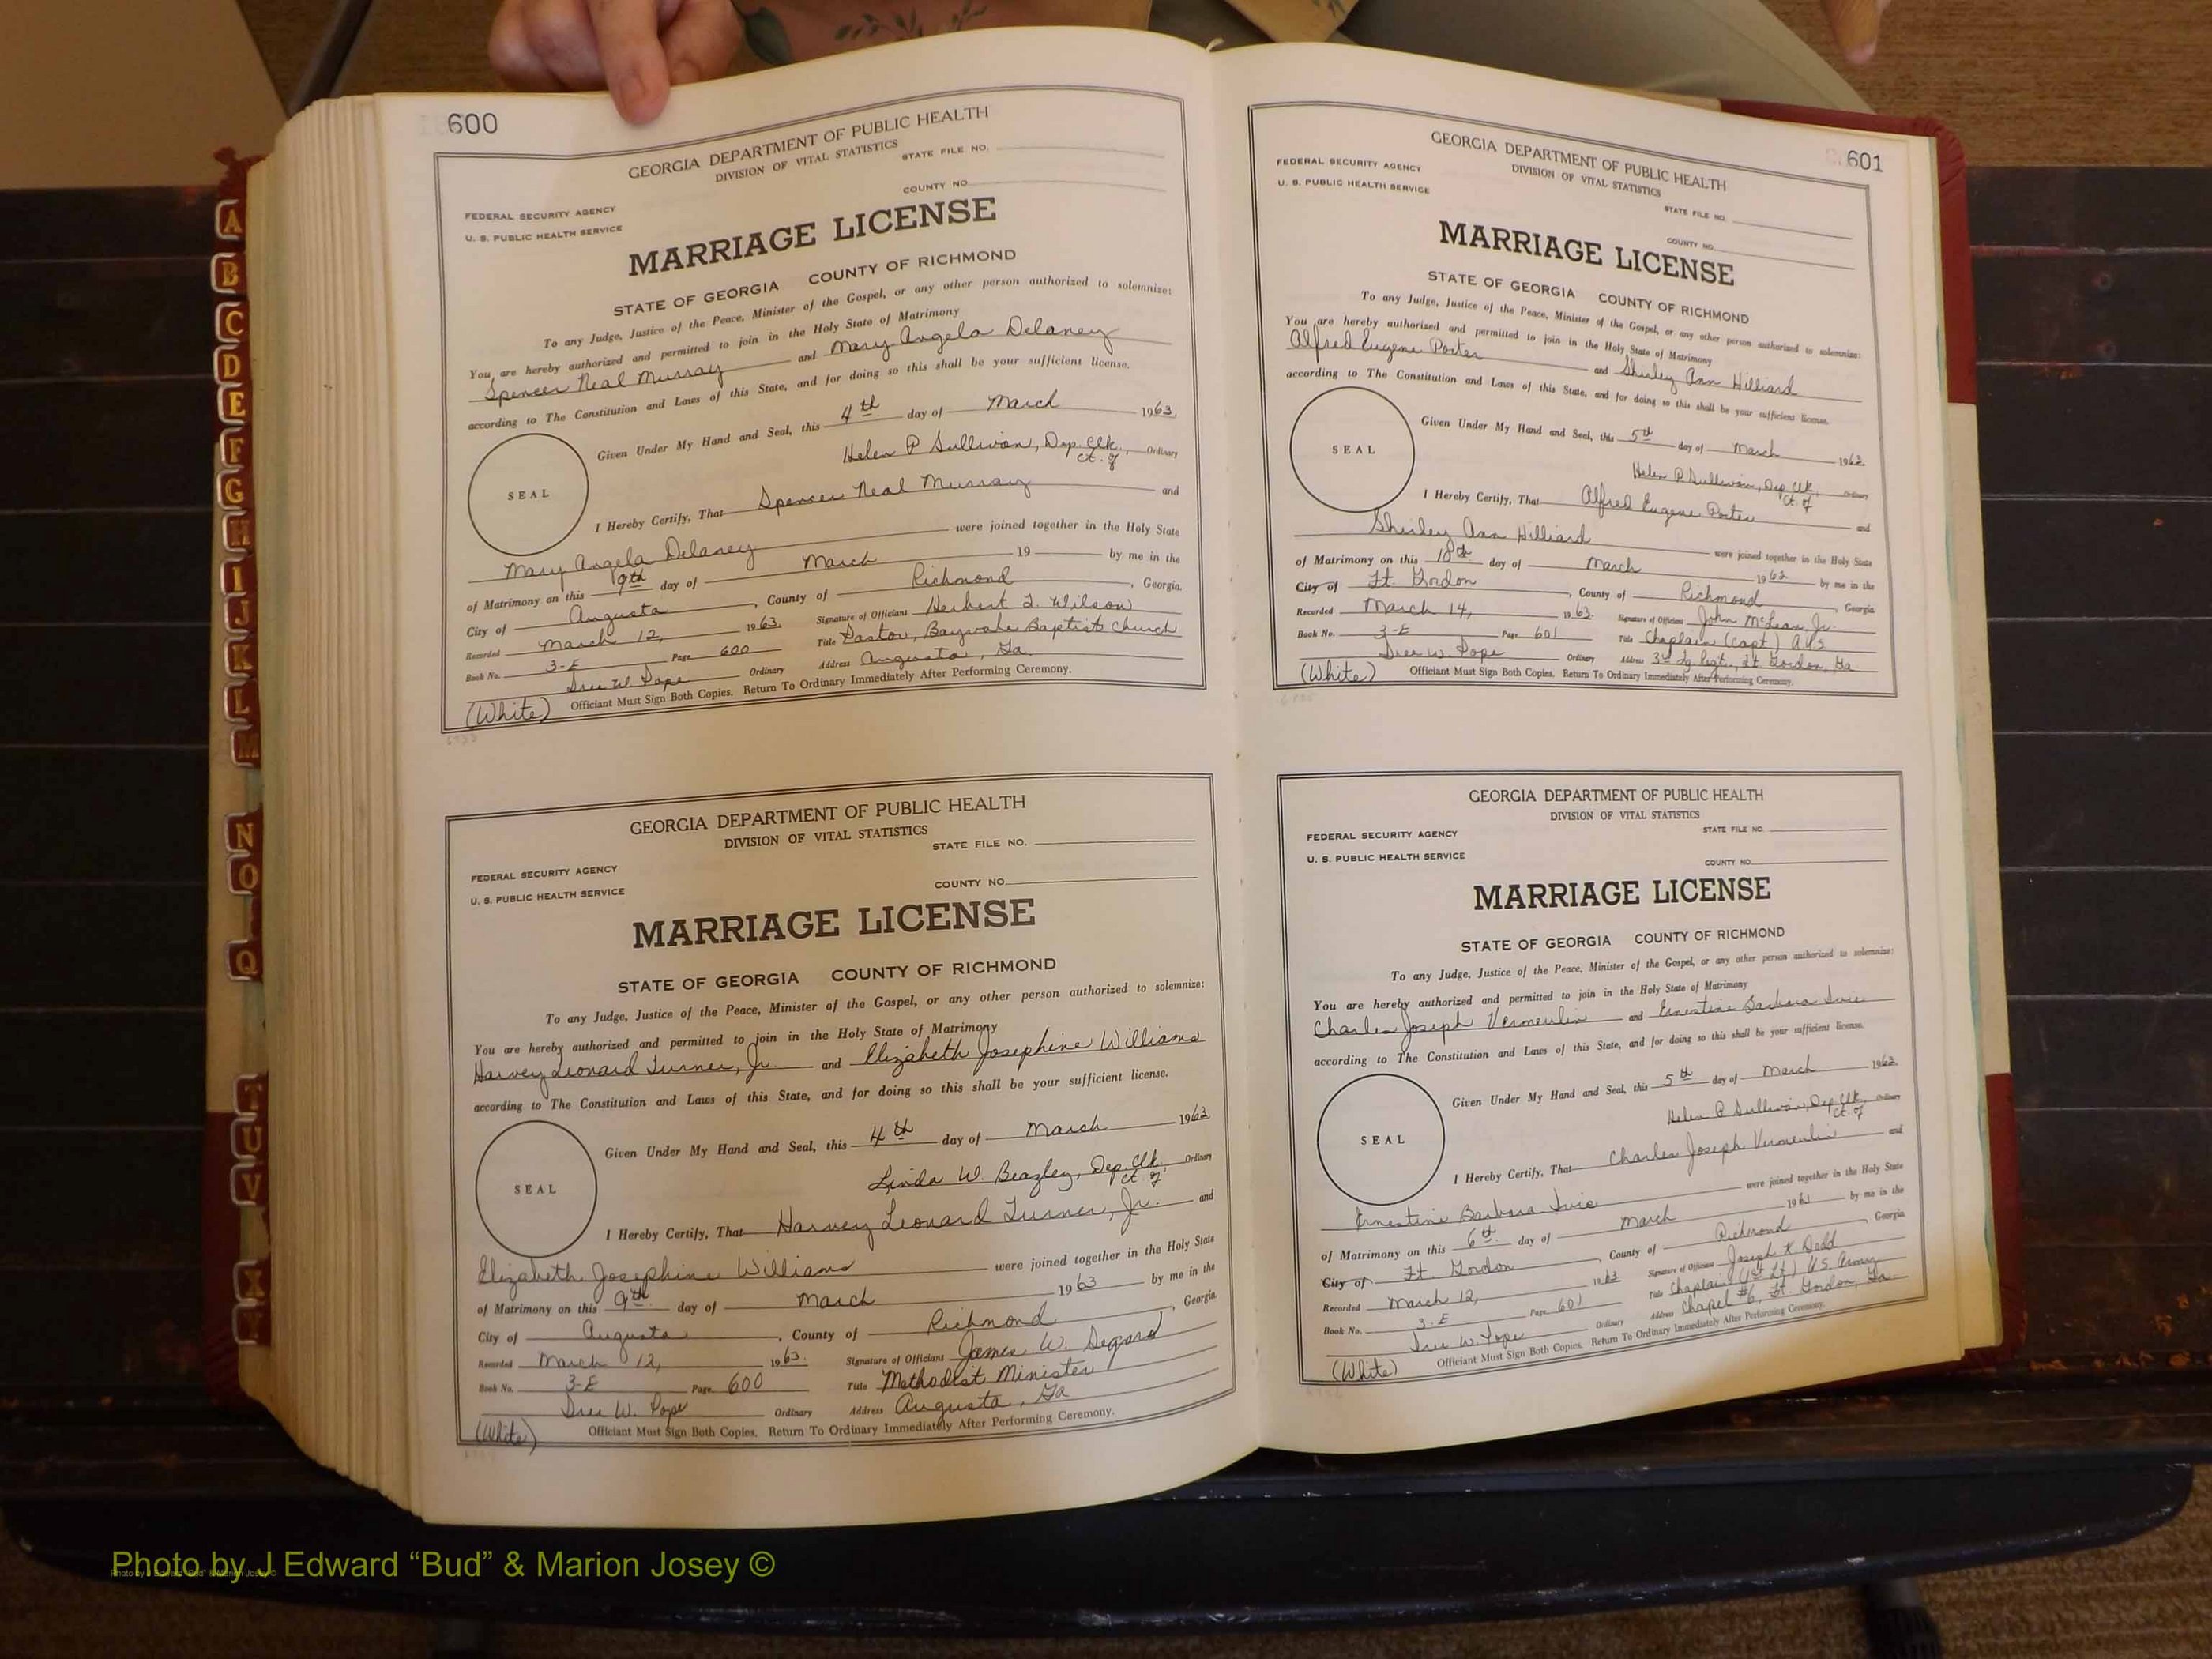 600
GEORGIA DEPARTMENT OF PUBLIC HEALTH
DIVISION OF VITAL STATISTICS
STATE FILE NO.
COUNTY NO.
FEDERAL SECURITY AGENCY
U. S. PUBLIC HEALTH SERVICE
MARRIAGE LICENSE
STATE OF GEORGIA COUNTY OF RICHMOND
To any Judge, Justice of the Peace, Minister of the Gospel, or any other person authorized to solemnize:
You are hereby authorized and permitted to join in the Holy State of Matrimony
Spencer Neal Murray and Mary Angela Delaney
according to The Constitution and Laws of this State, and for doing so this shall be your sufficient license.
Given Under My Hand and Seal, this 4th day of March 1963.
Helen P Sullivan, Dep. Clk., Ct. of Ordinary
SEAL
I Hereby Certify, That Spencer Neal Murray and
Mary Angela Delaney were joined together in the Holy State
of Matrimony on this 9th day of March 19 by me in the
City of Augusta, County of Richmond, Georgia.
Recorded March 12, 1963. Signature of Officiant Herbert L. Wilson
Book No. 3-E Page 600 Title Pastor, Bayvale Baptist Church
W. Pope Ordinary Address Augusta, Ga.
(White) Officiant Must Sign Both Copies. Return To Ordinary Immediately After Performing Ceremony.
GEORGIA DEPARTMENT OF PUBLIC HEALTH
DIVISION OF VITAL STATISTICS
STATE FILE NO.
FEDERAL SECURITY AGENCY
U. S. PUBLIC HEALTH SERVICE
COUNTY NO.
MARRIAGE LICENSE
STATE OF GEORGIA COUNTY OF RICHMOND
To any Judge, Justice of the Peace, Minister of the Gospel, or any other person authorized to solemnize:
You are hereby authorized and permitted to join in the Holy State of Matrimony
Harvey Leonard Turner, Jr. and Elizabeth Josephine Williams
according to The Constitution and Laws of this State, and for doing so this shall be your sufficient license.
Given Under My Hand and Seal, this 4th day of March 1963
Linda W. Beazley, Dep. Clk. Ct. of Ordinary
SEAL
I Hereby Certify, That Harvey Leonard Turner, Jr. and
Elizabeth Josephine Williams were joined together in the Holy State
of Matrimony on this 9th. day of March 1963 by me in the
City of Augusta, County of Richmond, Georgia.
Recorded March 12, 1963. Signature of Officiant James W. Segard
Book No. 3-E Page 600 Title Methodist Minister
W. Pope Ordinary Address Augusta, Ga
(White) Officiant Must Sign Both Copies. Return To Ordinary Immediately After Performing Ceremony.
601
GEORGIA DEPARTMENT OF PUBLIC HEALTH
FEDERAL SECURITY AGENCY
U. S. PUBLIC HEALTH SERVICE
DIVISION OF VITAL STATISTICS
STATE FILE NO.
COUNTY NO.
MARRIAGE LICENSE
STATE OF GEORGIA COUNTY OF RICHMOND
To any Judge, Justice of the Peace, Minister of the Gospel, or any other person authorized to solemnize:
You are hereby authorized and permitted to join in the Holy State of Matrimony
Alfred Eugene Porter and Shirley Ann Hilliard
according to The Constitution and Laws of this State, and for doing so this shall be your sufficient license.
Given Under My Hand and Seal, this 5th day of March 1963
Helen P. Sullivan, Dep. Clk. Ct. of Ordinary
SEAL
I Hereby Certify, That Alfred Eugene Porter and
Shirley Ann Hilliard were joined together in the Holy State
of Matrimony on this 10th day of March 1963 by me in the
City of Ft. Gordon, County of Richmond, Georgia
Recorded March 14, 1963. Signature of Officiant John McLean, Jr.
Book No. 3-E Page 601 Title Chaplain (Capt.) AUS
W. Pope Ordinary Address 3rd Tg. Regt., Ft. Gordon, Ga
(White) Officiant Must Sign Both Copies. Return To Ordinary Immediately After Performing Ceremony.
GEORGIA DEPARTMENT OF PUBLIC HEALTH
DIVISION OF VITAL STATISTICS
FEDERAL SECURITY AGENCY STATE FILE NO.
U. S. PUBLIC HEALTH SERVICE
COUNTY NO.
MARRIAGE LICENSE
STATE OF GEORGIA COUNTY OF RICHMOND
To any Judge, Justice of the Peace, Minister of the Gospel, or any other person authorized to solemnize:
You are hereby authorized and permitted to join in the Holy State of Matrimony
Charles Joseph Vermeulin and Ernestine Barbara
according to The Constitution and Laws of this State, and for doing so this shall be your sufficient license.
Given Under My Hand and Seal, this 5th day of March 1963
Helen P Sullivan, Dep Clk. Ct. of Ordinary
SEAL
I Hereby Certify, That Charles Joseph Vermeulin and
Ernestine Barbara were joined together in the Holy State
of Matrimony on this 6th. day of March 1961 by me in the
City of Ft. Gordon, County of Richmond, Georgia
Recorded March 12, 1963 Signature of Officiant Joseph K Dodd
Book No. 3-E Page 601 Title Chaplain (1st Lt) US Army
W. Pope Ordinary Address Chapel #6, Ft. Gordon, Ga.
(White) Officiant Must Sign Both Copies. Return To Ordinary Immediately After Performing Ceremony.
A
B
C
D
E
F
G
H
I
J
K
L
M
N
O
Q
T
U
V
X
Y
Photo by J Edward “Bud” & Marion Josey ©
Photo by J Edward “Bud” & Marion Josey ©